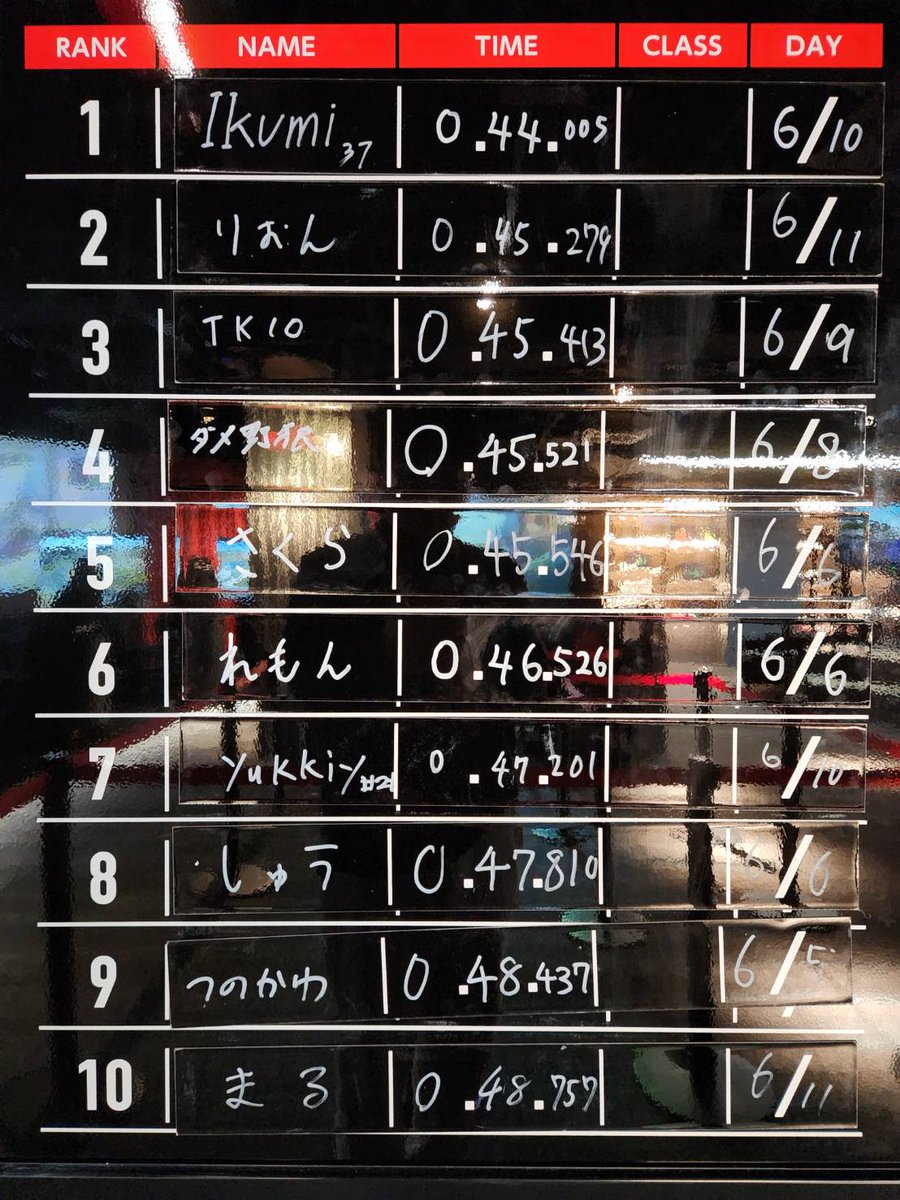 RANK NAME TIME CLASS DAY
1 Ikumi 37 0.44.005 6/10
2 りおん 0.45.279 6/11
3 TK10 0.45.413 6/9
4 ダメ 0.45.521 6/8
5 さくら 0.45.546 6/6
6 れもん 0.46.526 6/6
7 yukkiy 0.47.201 6/10
8 しゅう 0.47.810 6/6
9 つのかわ 0.48.437 6/5
10 まる 0.48.757 6/11